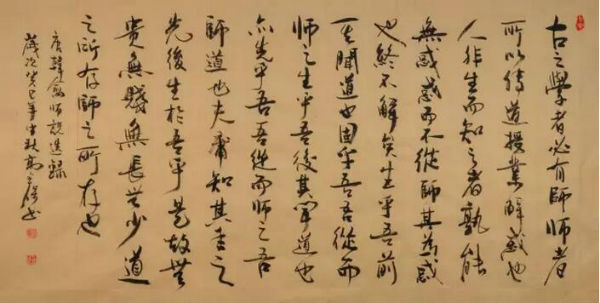 古之學者必有師師者
所以傳道授業解惑也
人非生而知之者孰能
無惑惑而不從師其為惑
也終不解矣生乎吾前
其聞道也固乎吾吾從而
師之生乎吾後其聞道也
亦先乎吾吾從而師之吾
師道也夫庸知其年之
先後生於吾乎是故無
貴無賤無長無少道
之所存師之所存也
唐韓愈師說選錄
歲次癸巳年中秋高書